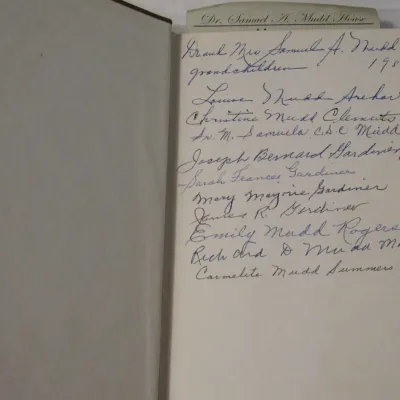 Dr. Samuel A. Mudd House
Dr and Mrs Samuel A. Mudd
grandchildren 198
Louise Mudd Arehar
Christine Mudd Clements
Sr. M. Samuela, C.D.C Mudd
Joseph Bernard Gardiner
Sarah Frances Gardiner
Mary Marjorie Gardiner
James R Gardiner
Emily Mudd Rogers
Richard D Mudd M
Carmelite Mudd Summers